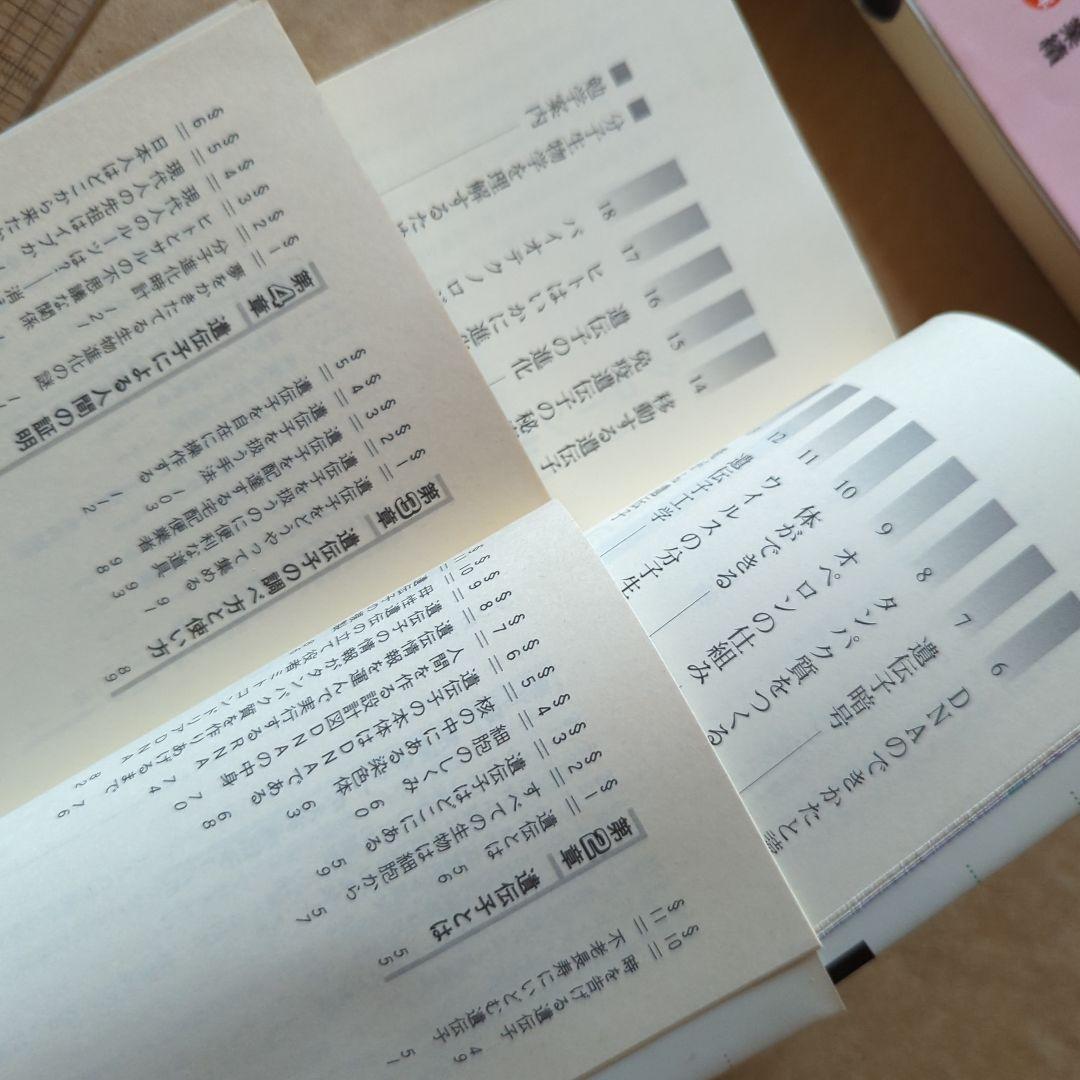 §10= 時を告げる遺伝子 49
§11= 不老長寿にいどむ遺伝子 51
第2章 遺伝子とは 55
§1= 遺伝とは 56
§2= すべての生物は細胞から 57
§3= 遺伝子はどこにある 59
§4= 細胞のしくみ 60
§5= 核の中にある染色体 63
§6= 遺伝子の本体はDNAである 68
§7= 人間を作る設計図DNAの中身 70
§8= 遺伝情報を運んで実行するRNA 74
§9= 遺伝子の情報がタンパク質を作りあげるまで 76
§10= 母性遺伝の立て役者ミトコンドリアDNA 82
§11=
第3章 遺伝子の調べ方と使い方 89
§1= 遺伝子をどうやって集める 91
§2= 遺伝子を扱うのに便利な道具 93
§3= 遺伝子を配達する宅配便業者 98
§4= 遺伝子を扱う手法 103
§5= 遺伝子を自在に操作する 112
第4章 遺伝子による人間の証明
§1= 夢をかきたてる生物進化の謎
§2= 分子進化時計 121
§3= ヒトとサルの不思議な関係
§4= 現代人のルーツは?
§5= 現代人の先祖はイブか
§6= 日本人はどこから来た
6 DNAのできかたと
7 遺伝子暗号
8 タンパク質をつくる
9 オペロン
10 体ができる仕組み
11 ウイルスの分子生
12 遺伝子工学
14 移動する遺伝子
15 免疫遺伝子の秘
16 遺伝子の進化
17 ヒトはいかに進
18 バイオテクノロジ
■ 分子生物学を理解するた
■ 勉学案内